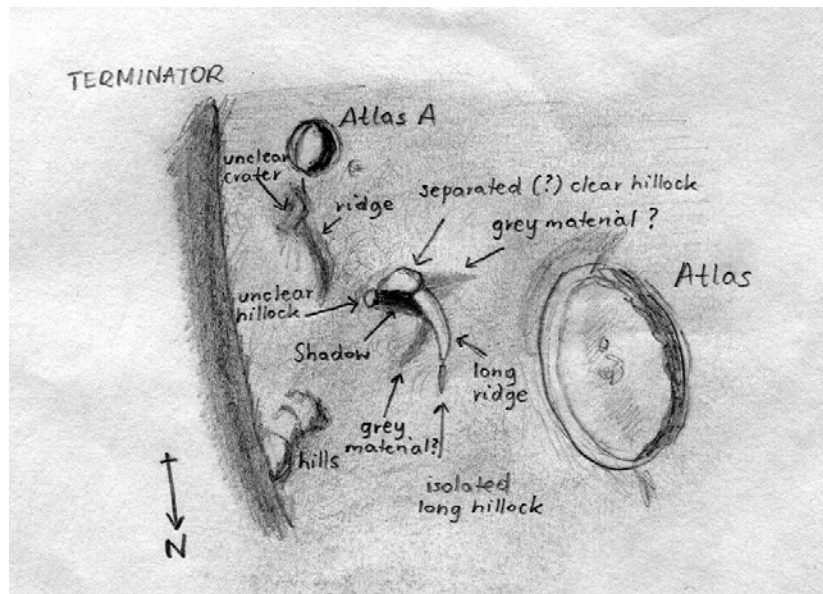 TERMINATOR
Atlas A
unclear
crater
ridge
separated (?) clear hillock
grey material ?
Atlas
unclear
hillock
Shadow
long
ridge
grey
material?
hills
isolated
long hillock
N